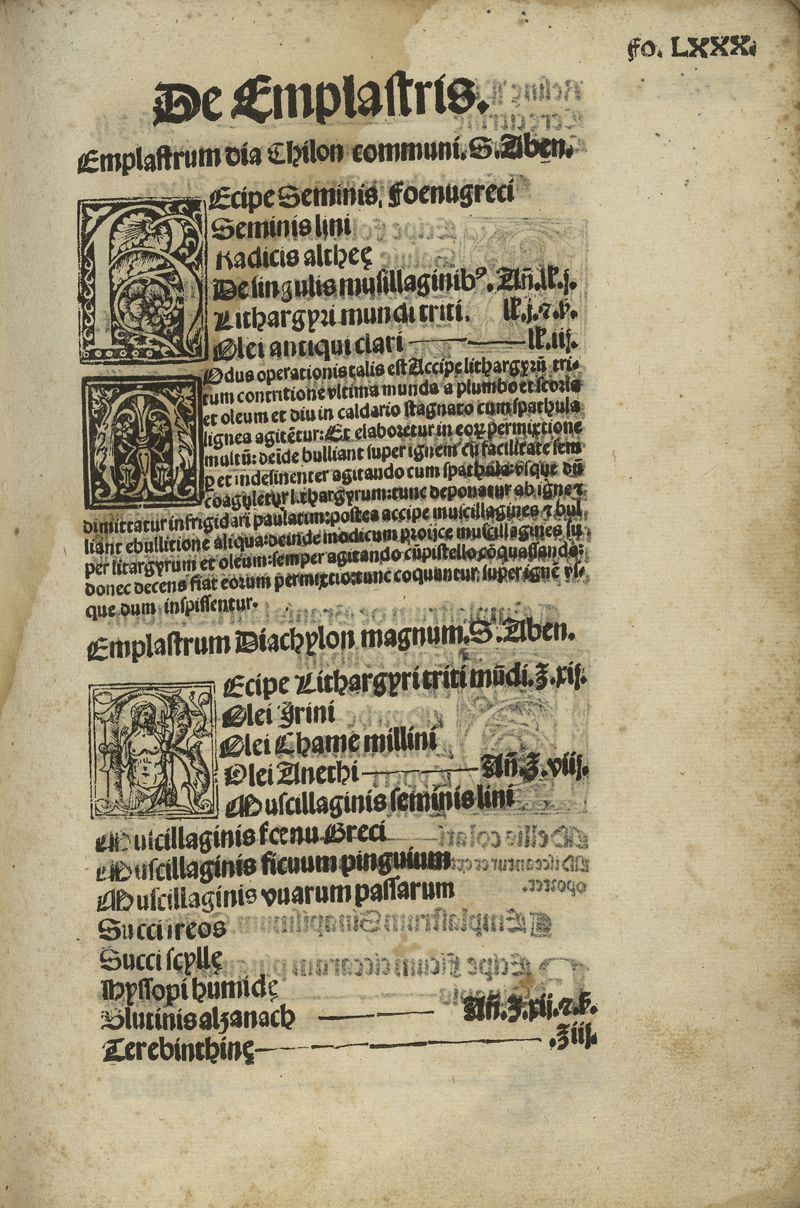 fo. LXXX.
De Emplastris.
Emplastrum dia Chilon communi. S. Aben.
REcipe Seminis. foenugreci
Seminis lini
Radicis altheę
De singulis musillaginibꝰ. Añ. lb. j.
Lithargyri mundi triti. lb. j. ⁊. ß.
Olei antiqui clari lb. iij.
MOdus operationis talis est Accipe lithargyrũ tri-
tum contritione vltima munda a plumbo et scoria
et oleum et diu in caldario stagnato cum spathula
lignea agitẽtur: Et elaboretur in eoꝝ permixtione
multũ: deĩde bulliant super ignem cũ facilitate sem
ꝑ et indesinenter agitando cum spathula: vsque dũ
coaguletur lithargyrum: tunc deponatur ab igne ⁊
dimittatur infrigidari paulatim: postea accipe muscillagines ⁊ bul
liant ebullitione aliqua: deinde modicum proijce muscillagines su-
per litargyrum et oleum: semper agitando cũ pistello cõquassando:
donec decens fiat eorum permixtio: tunc coquantur super ignẽ vs-
que dum inspissentur.
Emplastrum Diachylon magnum. S. Aben.
REcipe Lithargyri triti mũdi. ℥. xij.
Olei Irini
Olei Chame millini
Olei Anethi Añ. ℥. viij.
Muscillaginis seminis lini
Muscillaginis fœnu Greci
Muscillaginis ficuum pinguium
Muscillaginis vuarum passarum
Succi ireos
Succi scyllę
Hyssopi humidę
Glutinis alzanach Añ. ℥. xij. ⁊. ß.
Terebinthinę . ℥ iij.